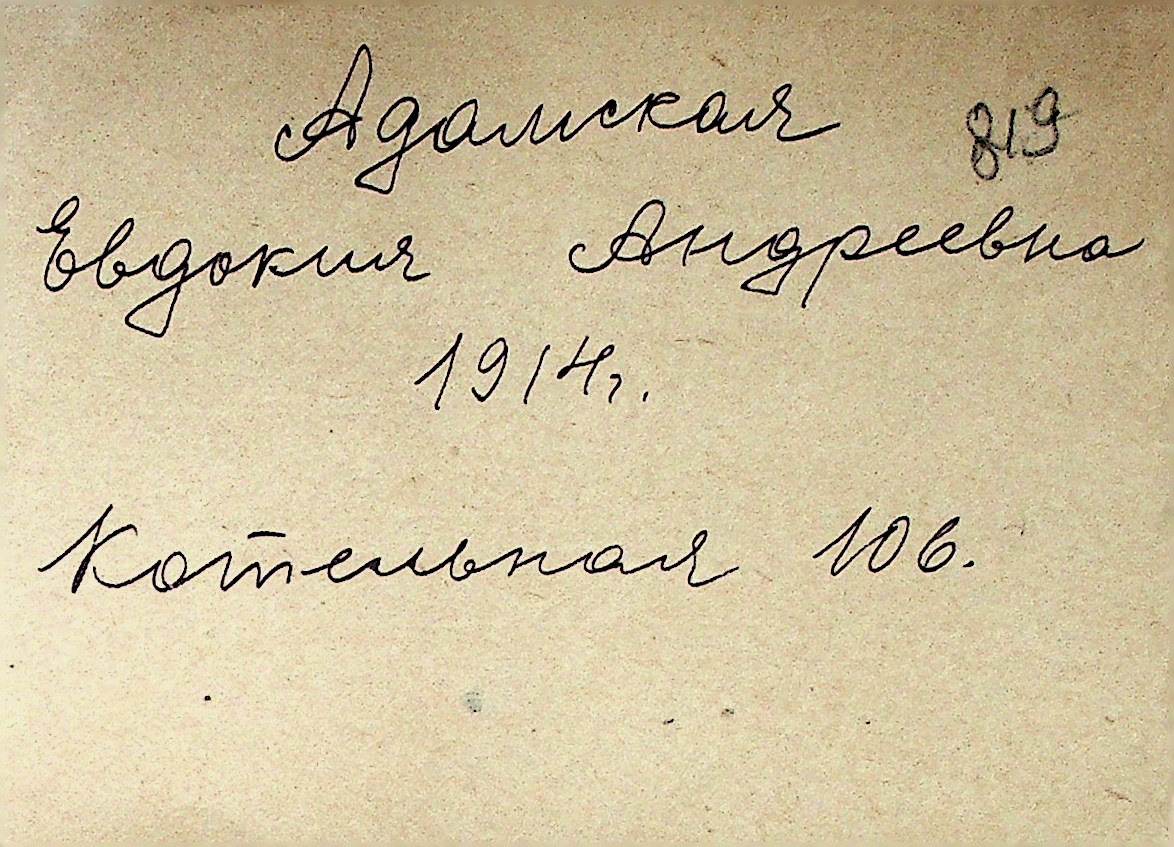 Адамская 819
Евдокия Андреевна
1914г.
Котельная 10в.